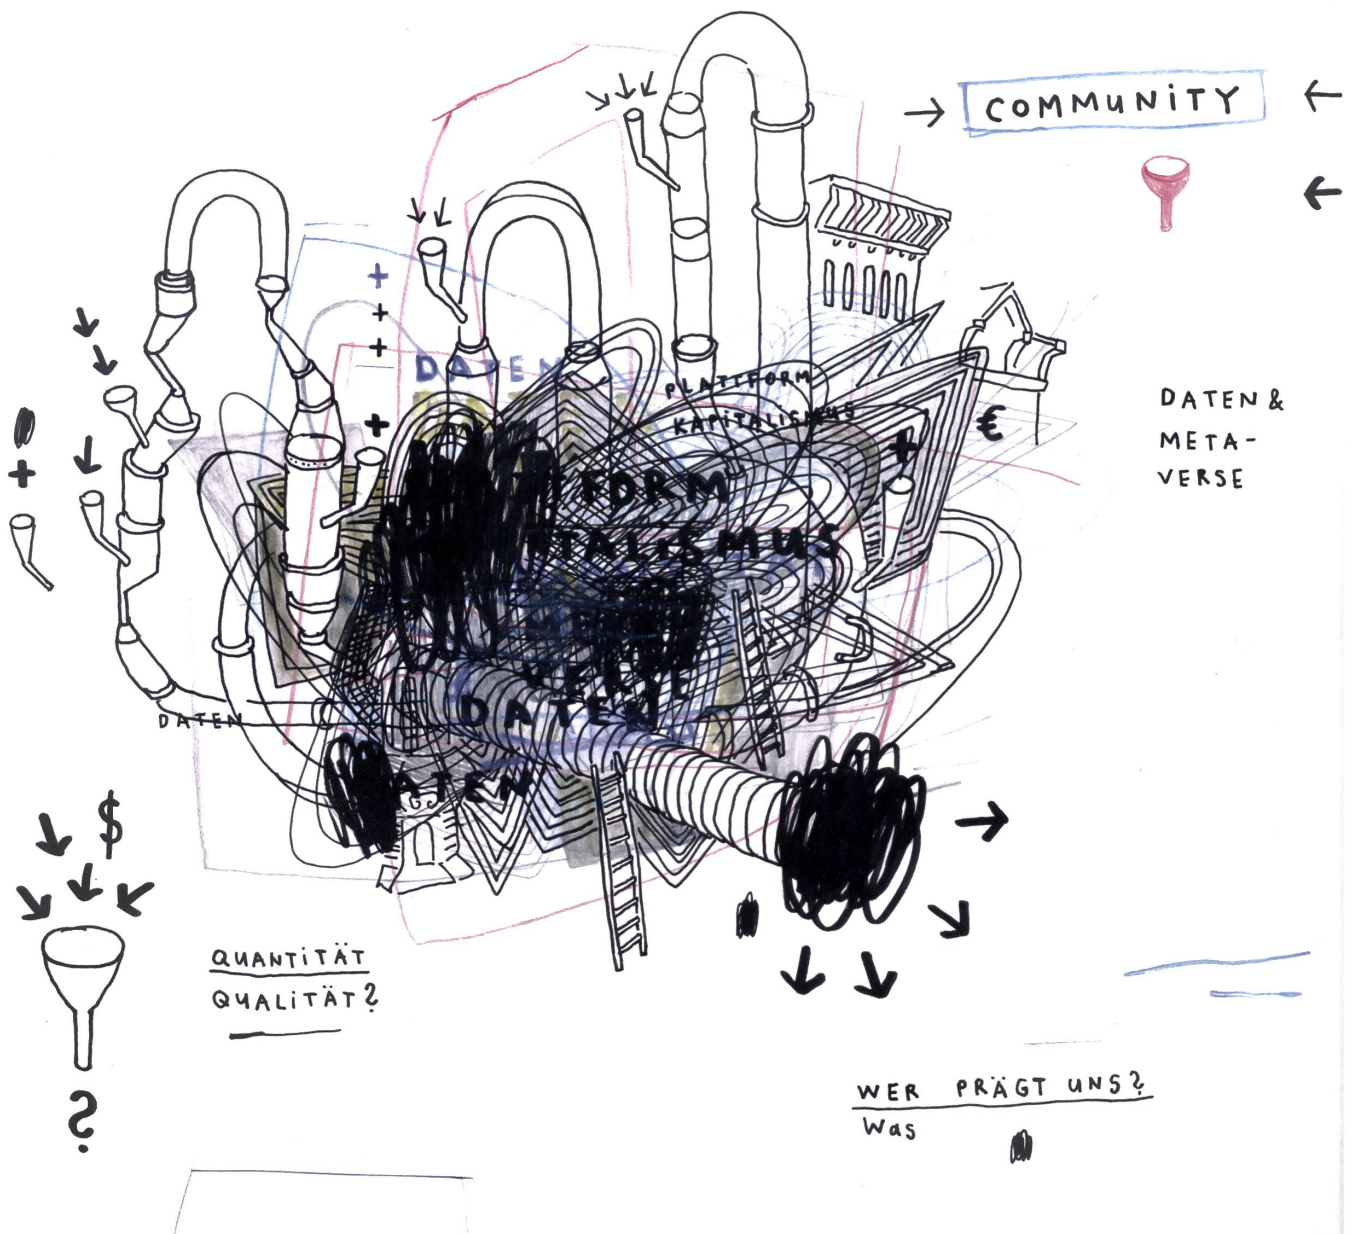 COMMUNiTY
DATEN
PLATTFORM
KAPiTALiSMUS
€
DATEN &
META-
VERSE
FORM
iTALiSMUS
DATEN
DATEN
ATEN
$
QUANTiTÄT
QUALiTÄT?
?
WER PRÄGT UNS?
Was